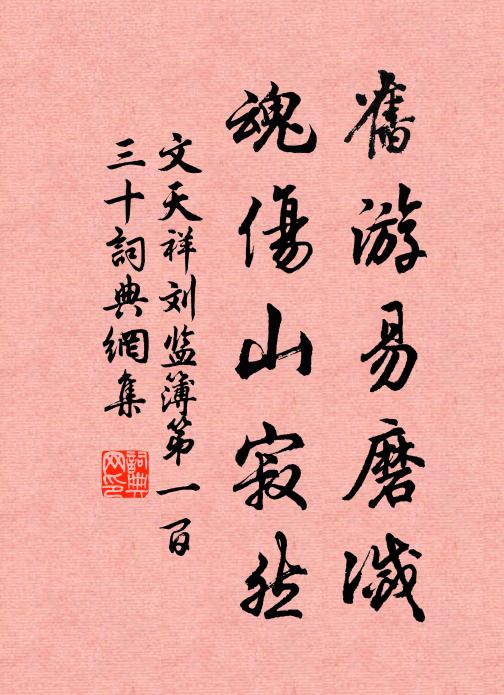 舊游易磨滅
魂傷山寂然
文天祥刘监簿第一百
三十詞典網集
詞典网印